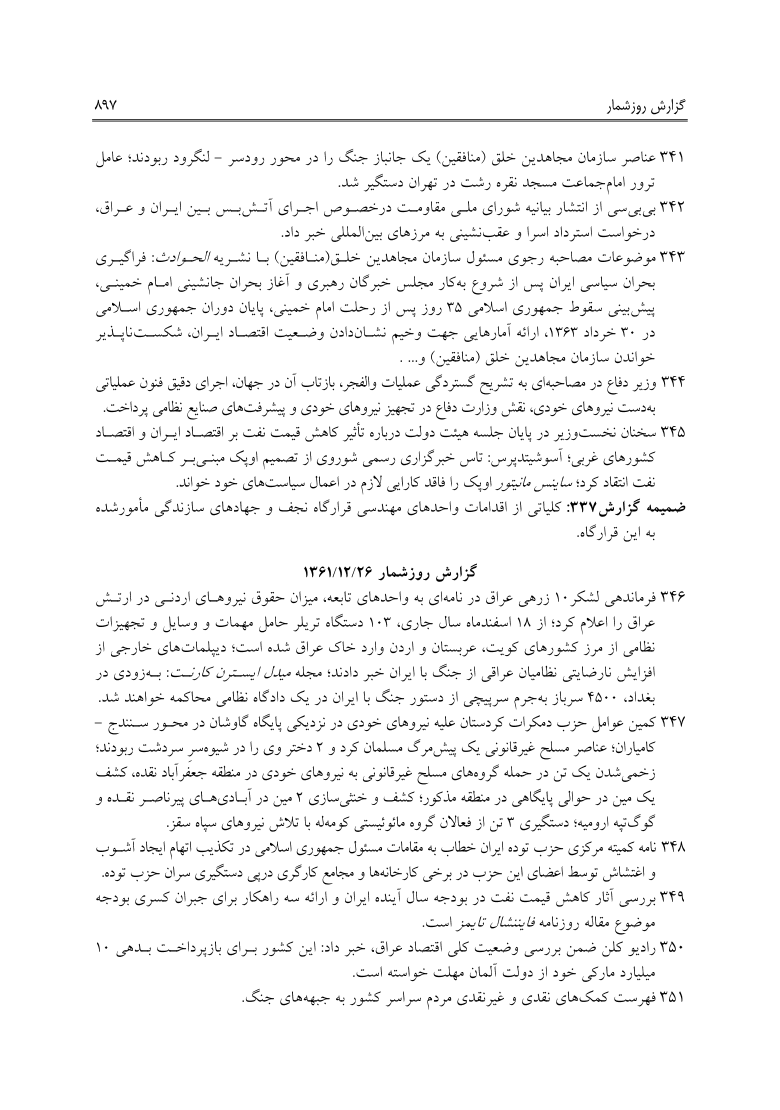 گزارش روزشمار ۸۹۷
۳۴۱ عناصر سازمان مجاهدین خلق (منافقین) یک جانباز جنگ را در محور رودسر - لنگرود ربودند؛ عامل
ترور امام‌جماعت مسجد نقره رشت در تهران دستگیر شد.
۳۴۲ بی‌بی‌سی از انتشار بیانیه شورای ملی مقاومت درخصوص اجرای آتش‌بس بین ایران و عراق،
درخواست استرداد اسرا و عقب‌نشینی به مرزهای بین‌المللی خبر داد.
۳۴۳ موضوعات مصاحبه رجوی مسئول سازمان مجاهدین خلق(منافقین) با نشریه الحوادث: فراگیری
بحران سیاسی ایران پس از شروع به‌کار مجلس خبرگان رهبری و آغاز بحران جانشینی امام خمینی،
پیش‌بینی سقوط جمهوری اسلامی ۳۵ روز پس از رحلت امام خمینی، پایان دوران جمهوری اسلامی
در ۳۰ خرداد ۱۳۶۳، ارائه آمارهایی جهت وخیم نشان‌دادن وضعیت اقتصاد ایران، شکست‌ناپذیر
خواندن سازمان مجاهدین خلق (منافقین) و... .
۳۴۴ وزیر دفاع در مصاحبه‌ای به تشریح گستردگی عملیات والفجر، بازتاب آن در جهان، اجرای دقیق فنون عملیاتی
به‌دست نیروهای خودی، نقش وزارت دفاع در تجهیز نیروهای خودی و پیشرفت‌های صنایع نظامی پرداخت.
۳۴۵ سخنان نخست‌وزیر در پایان جلسه هیئت دولت درباره تأثیر کاهش قیمت نفت بر اقتصاد ایران و اقتصاد
کشورهای غربی؛ آسوشیتدپرس: تاس خبرگزاری رسمی شوروی از تصمیم اوپک مبنی‌بر کاهش قیمت
نفت انتقاد کرد؛ ساینس مانیتور اوپک را فاقد کارایی لازم در اعمال سیاست‌های خود خواند.
ضمیمه گزارش۳۳۷: کلیاتی از اقدامات واحدهای مهندسی قرارگاه نجف و جهادهای سازندگی مأمورشده
به این قرارگاه.
گزارش روزشمار ۱۳۶۱/۱۲/۲۶
۳۴۶ فرماندهی لشکر۱۰ زرهی عراق در نامه‌ای به واحدهای تابعه، میزان حقوق نیروهای اردنی در ارتش
عراق را اعلام کرد؛ از ۱۸ اسفندماه سال جاری، ۱۰۳ دستگاه تریلر حامل مهمات و وسایل و تجهیزات
نظامی از مرز کشورهای کویت، عربستان و اردن وارد خاک عراق شده است؛ دیپلمات‌های خارجی از
افزایش نارضایتی نظامیان عراقی از جنگ با ایران خبر دادند؛ مجله میدل ایسترن کارنت: به‌زودی در
بغداد، ۴۵۰۰ سرباز به‌جرم سرپیچی از دستور جنگ با ایران در یک دادگاه نظامی محاکمه خواهند شد.
۳۴۷ کمین عوامل حزب دمکرات کردستان علیه نیروهای خودی در نزدیکی پایگاه گاوشان در محور سنندج -
کامیاران؛ عناصر مسلح غیرقانونی یک پیش‌مرگ مسلمان کرد و ۲ دختر وی را در شیوه‌سرِ سردشت ربودند؛
زخمی‌شدن یک تن در حمله گروه‌های مسلح غیرقانونی به نیروهای خودی در منطقه جعفرآباد نقده، کشف
یک مین در حوالی پایگاهی در منطقه مذکور؛ کشف و خنثی‌سازی ۲ مین در آبادی‌های پیرناصر نقده و
گوگ‌تپه ارومیه؛ دستگیری ۳ تن از فعالان گروه مائوئیستی کومه‌له با تلاش نیروهای سپاه سقز.
۳۴۸ نامه کمیته مرکزی حزب توده ایران خطاب به مقامات مسئول جمهوری اسلامی در تکذیب اتهام ایجاد آشوب
و اغتشاش توسط اعضای این حزب در برخی کارخانه‌ها و مجامع کارگری درپی دستگیری سران حزب توده.
۳۴۹ بررسی آثار کاهش قیمت نفت در بودجه سال آینده ایران و ارائه سه راهکار برای جبران کسری بودجه
موضوع مقاله روزنامه فایننشال تایمز است.
۳۵۰ رادیو کلن ضمن بررسی وضعیت کلی اقتصاد عراق، خبر داد: این کشور برای بازپرداخت بدهی ۱۰
میلیارد مارکی خود از دولت آلمان مهلت خواسته است.
۳۵۱ فهرست کمک‌های نقدی و غیرنقدی مردم سراسر کشور به جبهه‌های جنگ.